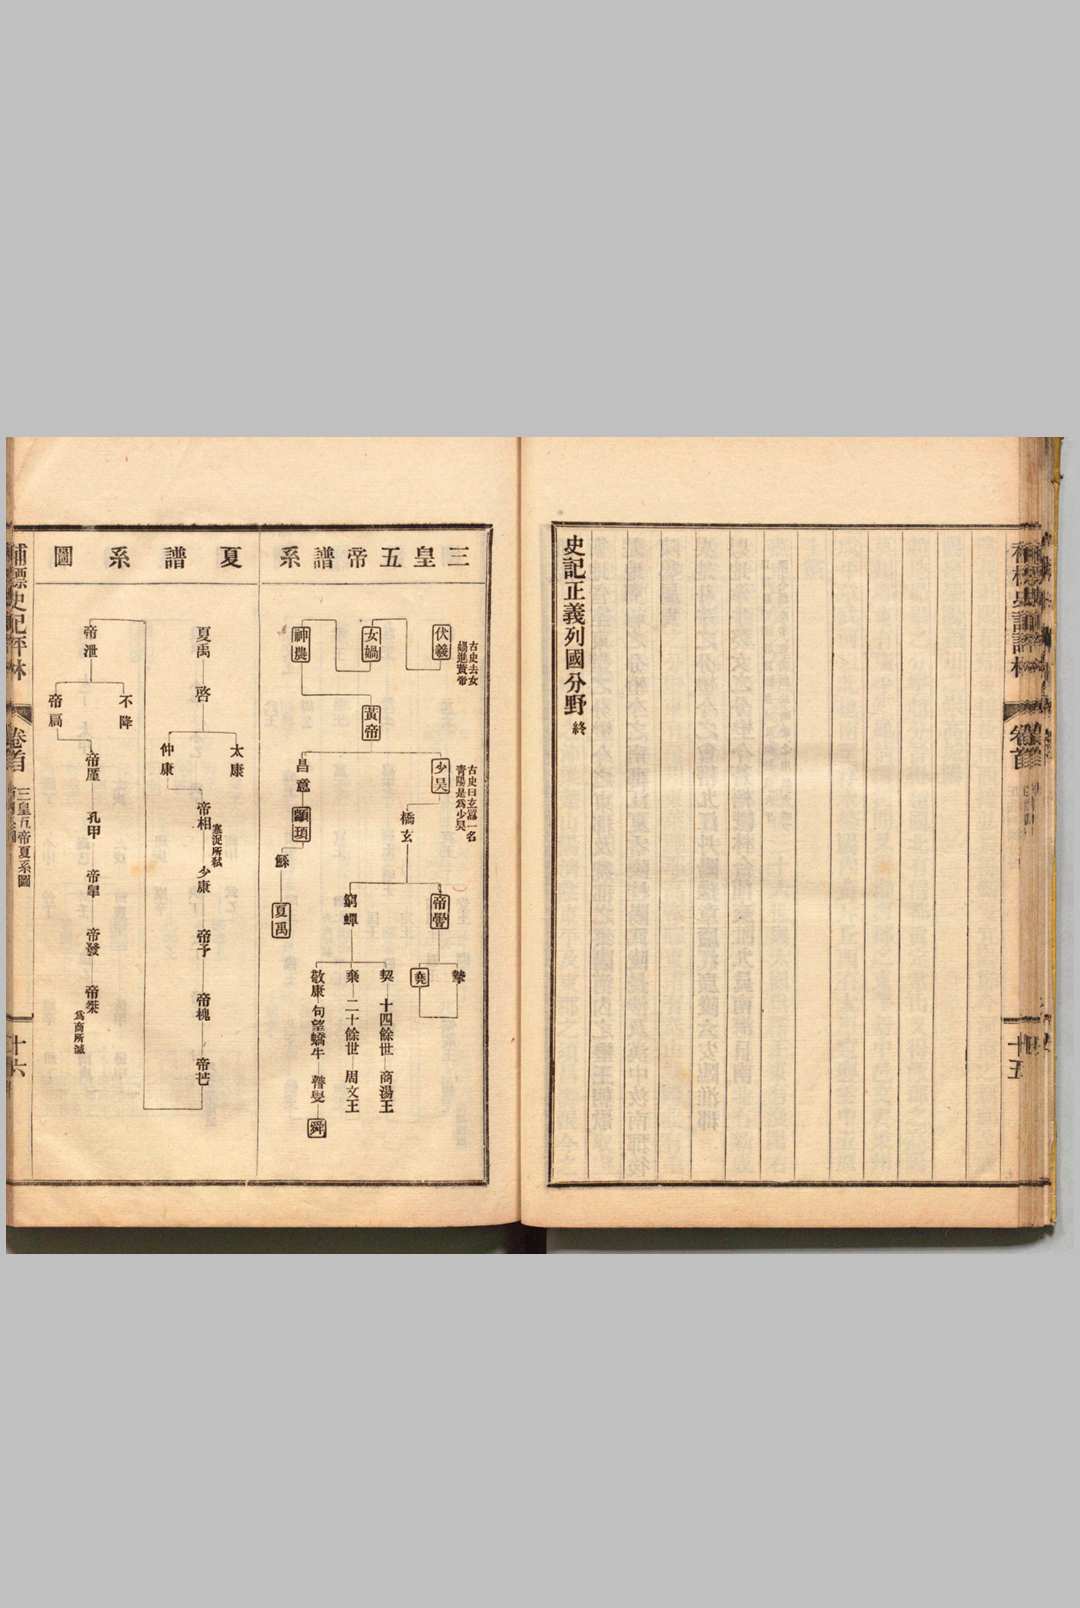 史記正義列國分野 終
十五
三皇五帝譜系
伏羲
古史去女
媧進黃帝
女媧
神農
黃帝
少昊
古史曰玄囂一名
青陽是爲少昊
昌意
顓頊
鯀
夏禹
橋玄
帝嚳
窮蟬
摯
堯
契 十四餘世 商湯王
棄 二十餘世 周文王
敬康 句望 蟜牛 瞽叟 舜
夏譜系圖
夏禹 啓
太康
仲康
帝相
寒浞所弒
少康
帝予
帝槐
帝芒
帝泄
不降
帝扃
帝厪
孔甲
帝皐
帝發
帝桀
爲商所滅
補標史記評林
卷首
三皇五帝夏系圖
十六